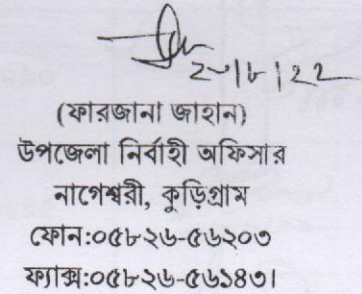 ২০|৮|২২
(ফারজানা জাহান)
উপজেলা নির্বাহী অফিসার
নাগেশ্বরী, কুড়িগ্রাম
ফোন:০৫৮২৬-৫৬২০৩
ফ্যাক্স:০৫৮২৬-৫৬১৪৩।